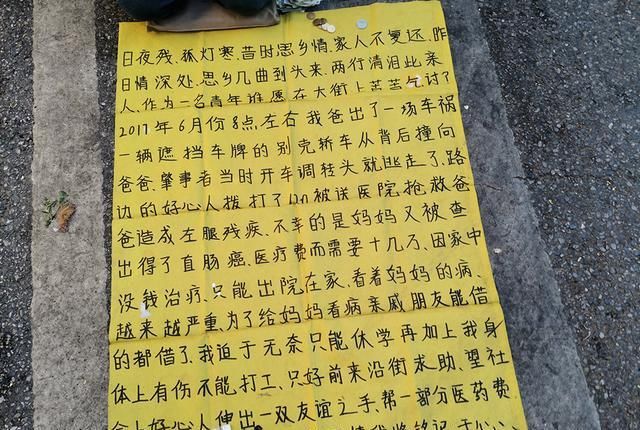 日夜残、孤灯寒、昔时思乡情、家人不复还、昨
日情深处、思乡几曲到头来、两行清泪比亲
人、作为一名青年谁愿在大街上苦苦乞讨了
2017年6月份8点左右我爸出了一场车祸
一辆遮挡车牌的别克轿车从背后撞向
爸爸、肇事者当时开车调转头就逃走了、路
边的好心人拨打了120被送医院、抢救爸
爸造成左腿残疾、不幸的是妈妈又被查
出得了直肠癌、医疗费而需要十几万、因家中
没钱治疗、只能出院在家、看着妈妈的病、
越来越严重、为了给妈妈看病亲戚朋友能借
的都借了、我迫于无奈只能休学再加上我身
体上有伤不能打工、只好前来沿街求助、望社
会上好心人伸出一双友谊之手、帮一部分医药费